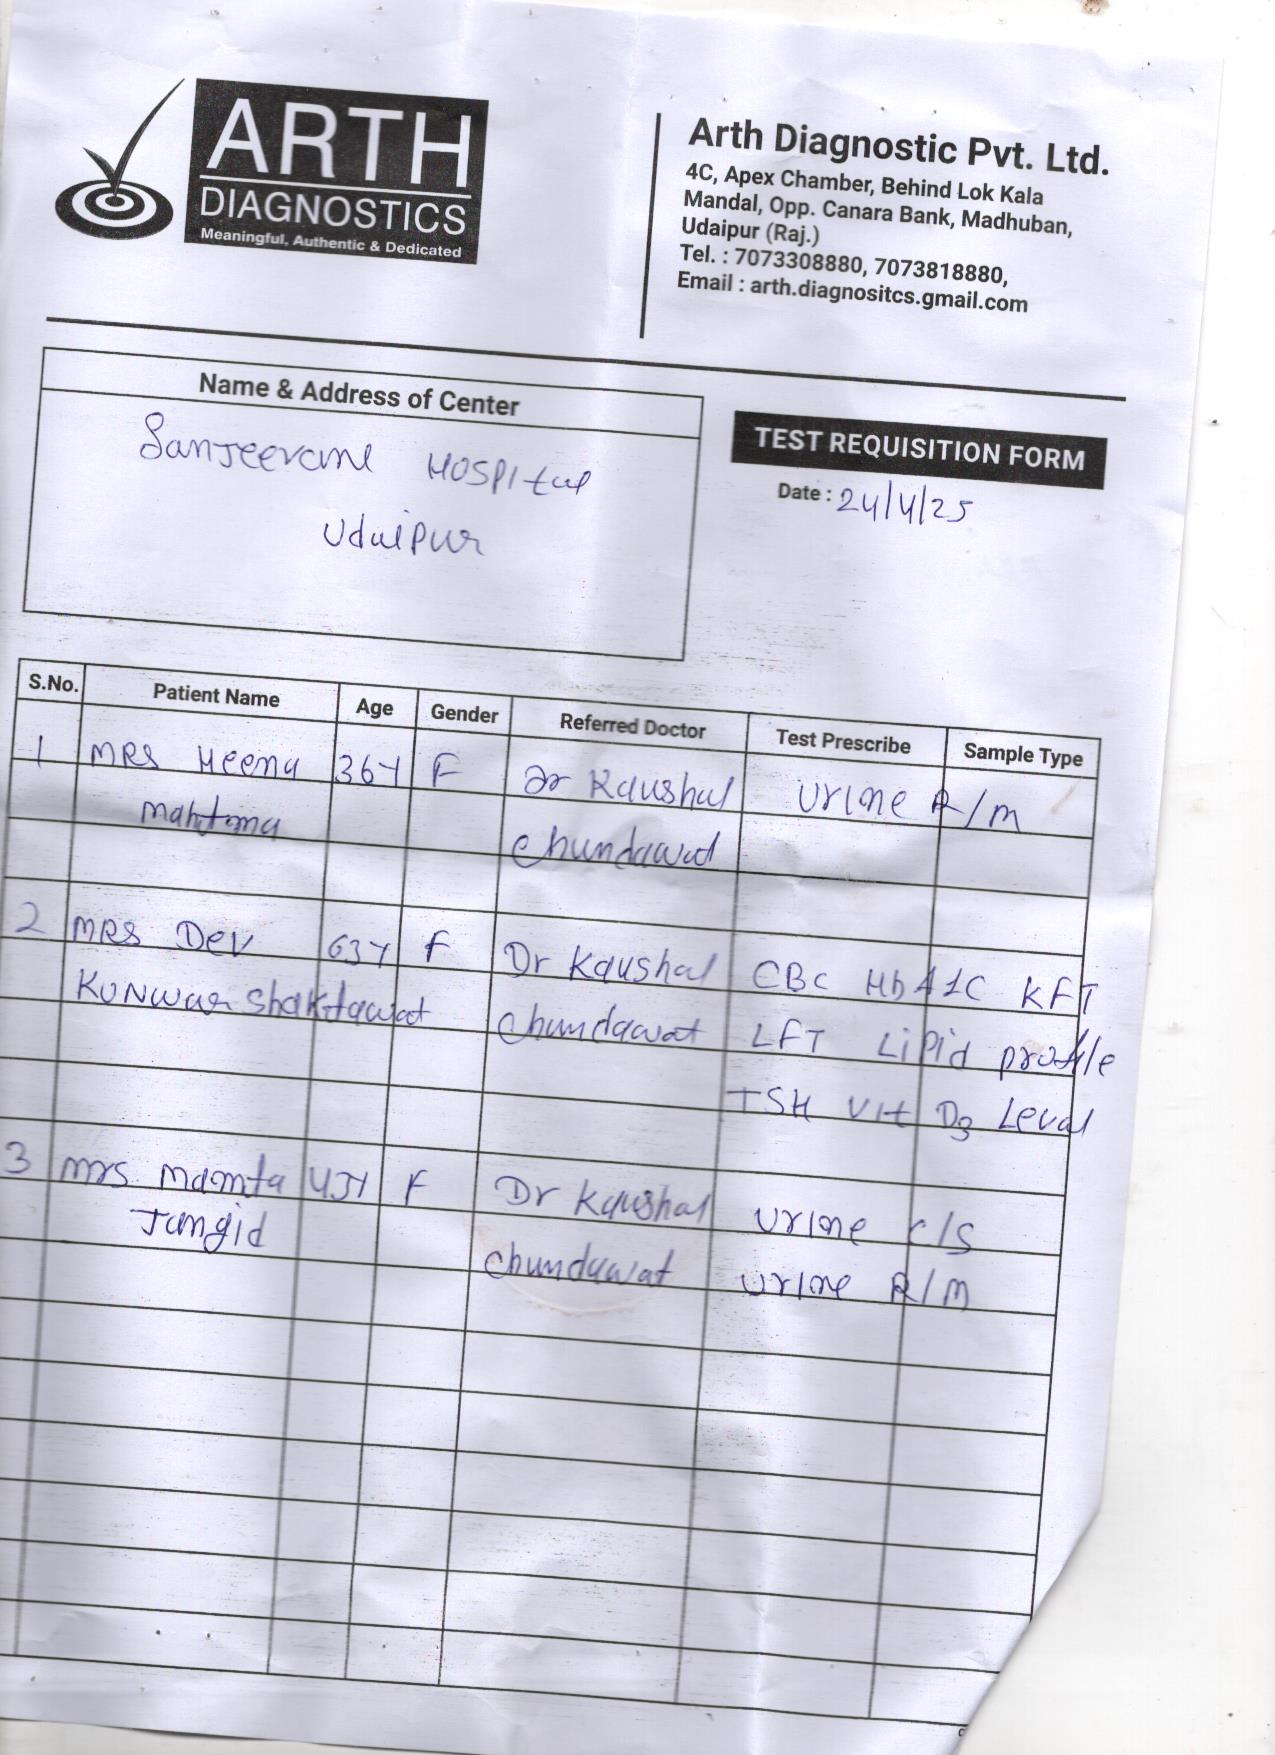 ARTH
DIAGNOSTICS
Meaningful, Authentic & Dedicated
Arth Diagnostic Pvt. Ltd.
4C, Apex Chamber, Behind Lok Kala
Mandal, Opp. Canara Bank, Madhuban,
Udaipur (Raj.)
Tel. : 7073308880, 7073818880,
Email : arth.diagnositcs.gmail.com
Name & Address of Center
Sanjeevani Hospital
Udaipur
TEST REQUISITION FORM
Date : 24/4/25
S.No. Patient Name Age Gender Referred Doctor Test Prescribe Sample Type
1 MRS Heena 36Y F Dr Kaushal Urine R/M
Chundawat
2 MRS Dev 63Y F Dr Kaushal CBC HbA1C KFT
Kunwar Shaktawat Chundawat LFT Lipid profile
TSH Vit D3 Leval
3 Mrs. Mamta F Dr Kaushal Urine C/S
Jangid Chundawat Urine R/M